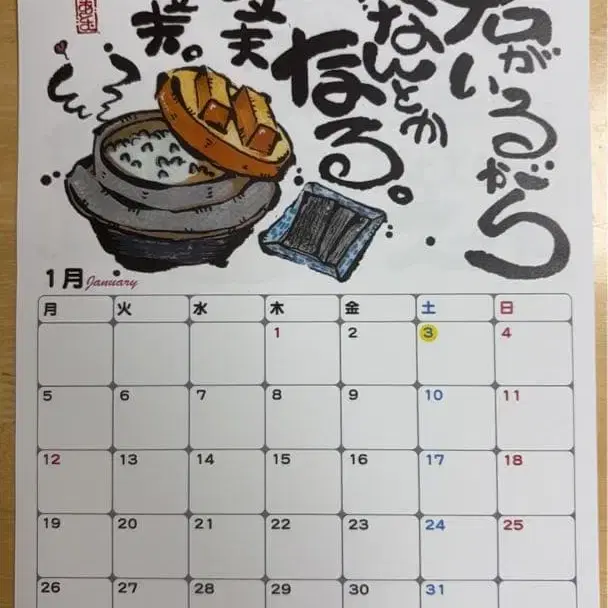 君がいるから
なんとか
なる。
1月 January
月 火 水 木 金 土 日
1 2 3 4
5 6 7 8 9 10 11
12 13 14 15 16 17 18
19 20 21 22 23 24 25
26 27 28 29 30 31